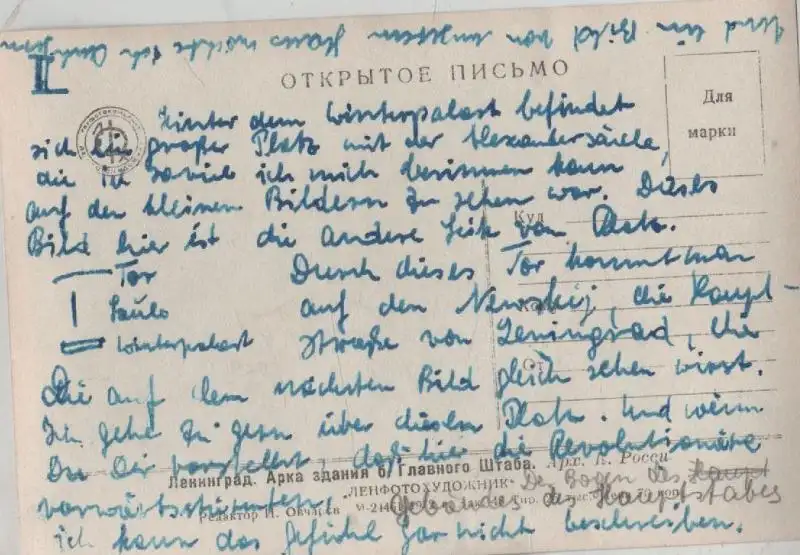 Und ein Bild von unserem Haus möchte ich auch gern
II
ОТКРЫТОЕ ПИСЬМО
Для
марки
Hinter dem Winterpalast befindet
sich ein großer Platz mit der Alexandersäule,
die ja soviel ich mich besinnen kann
auf den kleinen Bildern zu sehen war. Dieses
Куд
Bild hier ist die andere Seite vom Platz.
Tor Durch dieses Tor kommt man
Säule auf den Newskij, die Haupt-
Winterpalast straße von Leningrad, die
Du auf dem nächsten Bild gleich sehen wirst.
Ich gehe zu gern über diesen Platz. Und wenn
Du Dir vorstellst, daß hier die Revolutionäre
Ленинград. Арка здания б. Главного Штаба. Арх. К. Росси
Der Bogen des Haupt
"ЛЕНФОТОХУДОЖНИК"
vorwärtsstürmten,
gebäudes des Hauptstabes
Редактор И. Овчаров
ich kann das Gefühl gar nicht beschreiben.